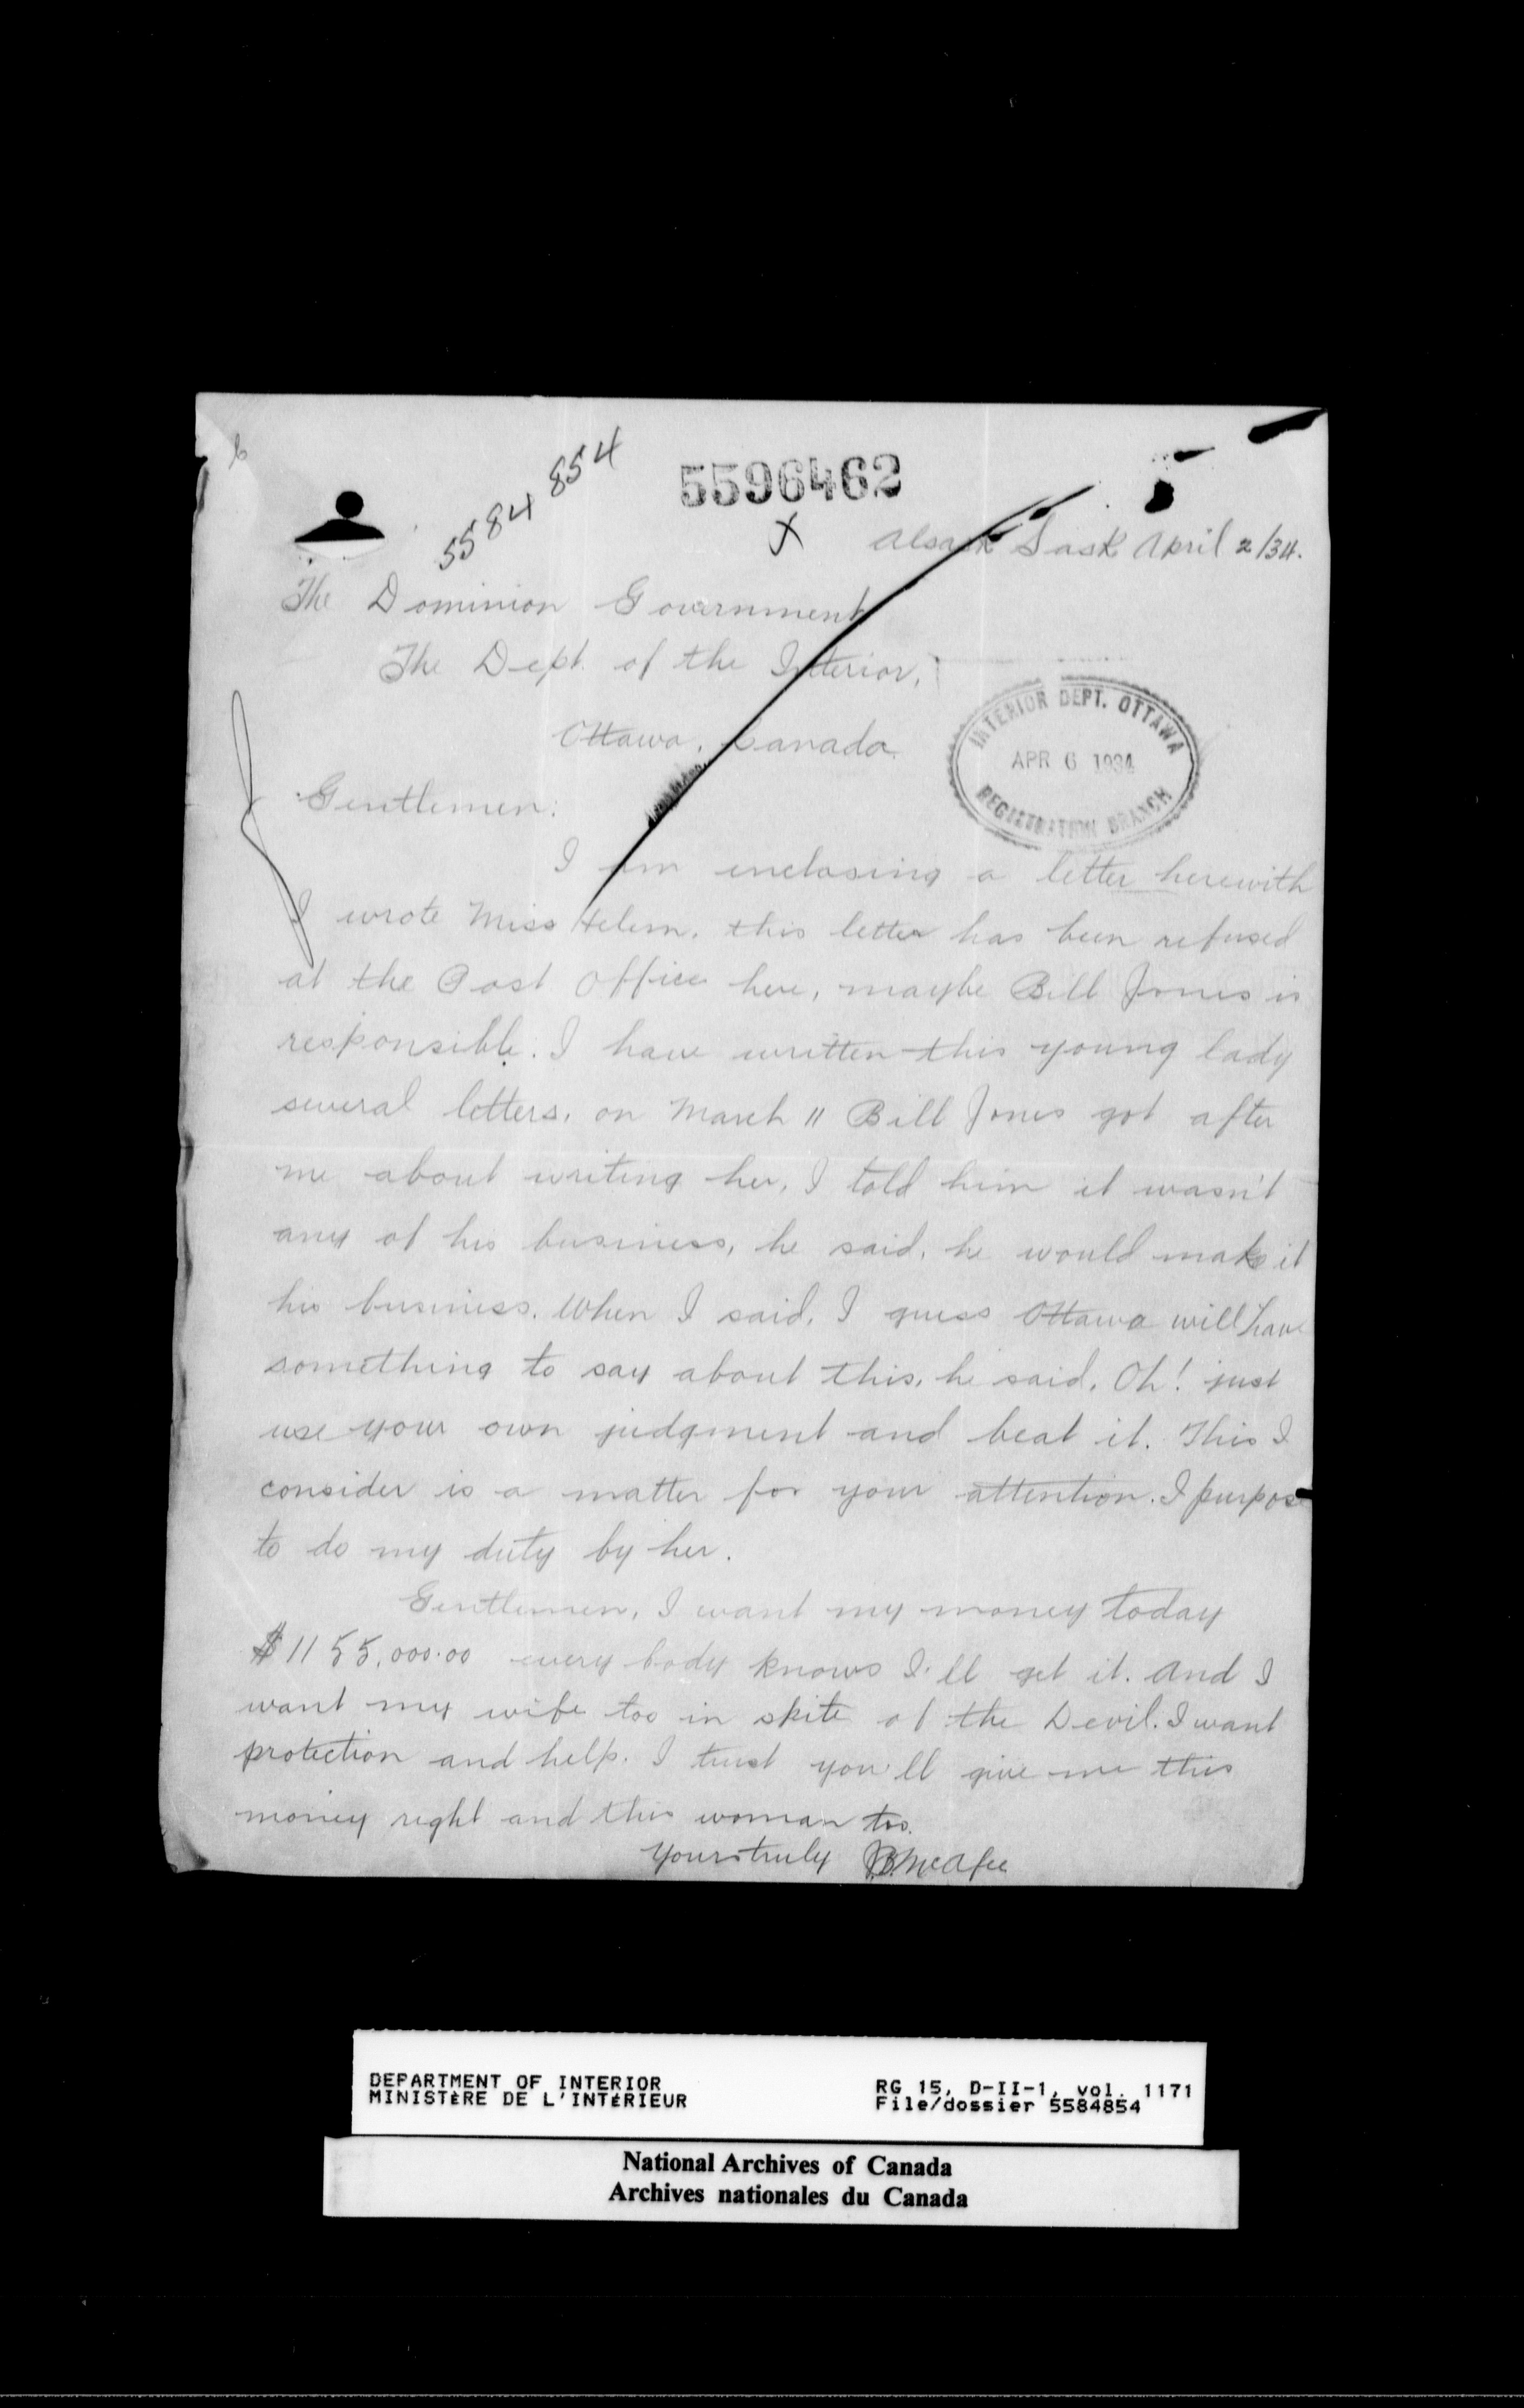 6
5584854
5596462
X
Alsask Sask April 2/34.
The Dominion Government
The Dept. of the Interior,
Ottawa, Canada.
INTERIOR DEPT. OTTAWA
APR 6 1934
REGISTRATION BRANCH
Gentlemen:
I am enclosing a letter herewith
I wrote Miss Helem, this letter has been refused
at the Post Office here, maybe Bill Jones is
responsible. I have written this young lady
several letters, on March 11 Bill Jones got after
me about writing her, I told him it wasn't
any of his business, he said, he would make it
his business. When I said, I guess Ottawa will have
something to say about this, he said, Oh! just
use your own judgment and beat it. This I
consider is a matter for your attention. I purpose
to do my duty by her.
Gentlemen, I want my money today
$1155,000.00 every body knows I'll get it. And I
want my wife too in spite of the Devil. I want
protection and help. I trust you'll give me this
money right and this woman too.
Yours truly JB McAfee
DEPARTMENT OF INTERIOR
MINISTÈRE DE L'INTÉRIEUR
RG 15, D-II-1, vol. 1171
File/dossier 5584854
National Archives of Canada
Archives nationales du Canada